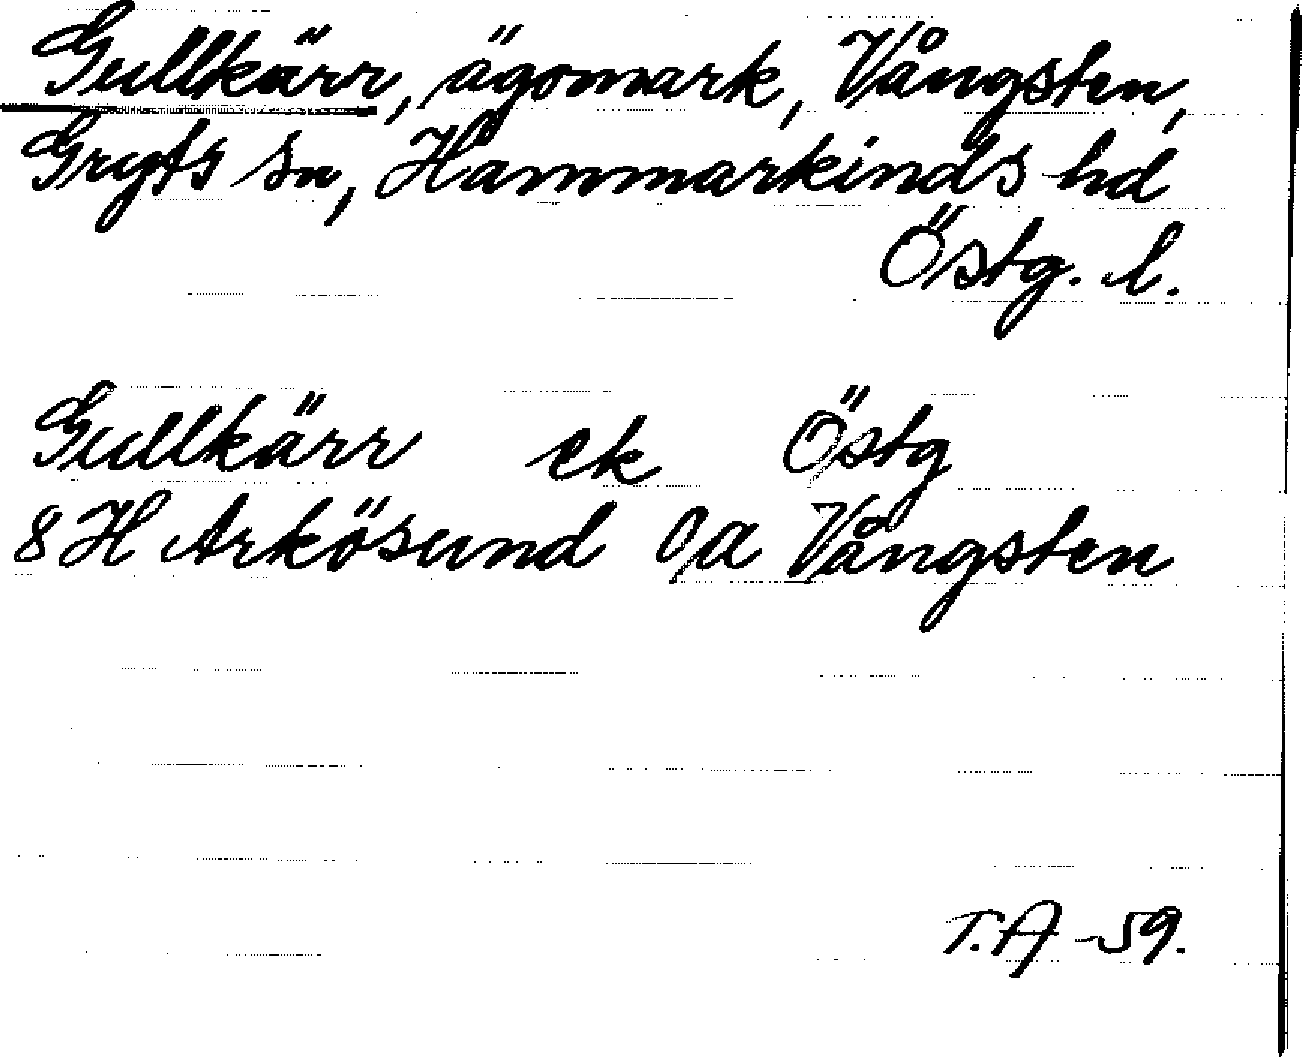 Gullkärr, ägomark, Vångsten,
Gryts sn, Hammarkinds hd
Östg. l.
Gullkärr ek Östg
8 H Arkösund o/a Vångsten
T.A -59.